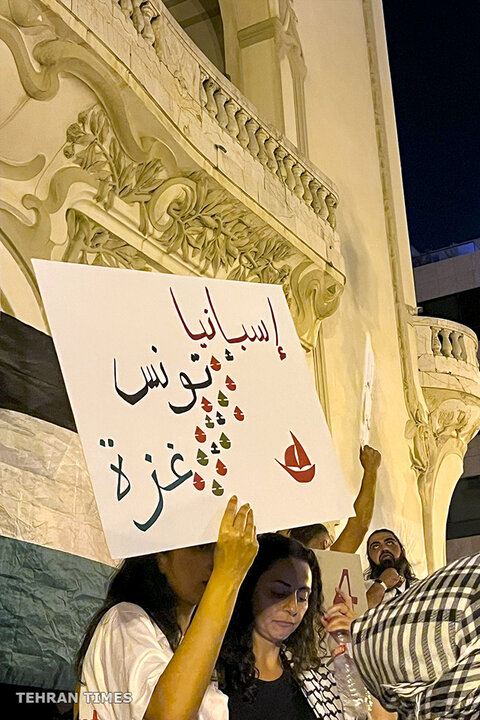 إسبانيا
تونس
غزة
4
TEHRAN TIMES